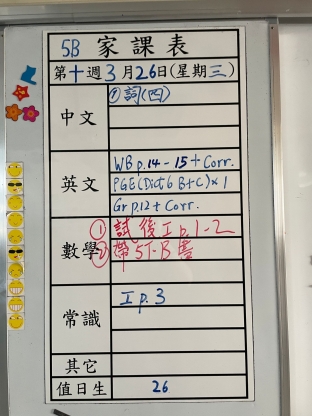 5B 家課表
第十週3月26日(星期三)
中文
① 詞(四)
英文
WB p.14-15 + Corr.
PGE (Dict6 B+C) x 1
Gr p.12 + Corr.
數學
① 試後工p.1-2
② 帶5下B書
常識
工p.3
其它
值日生 26